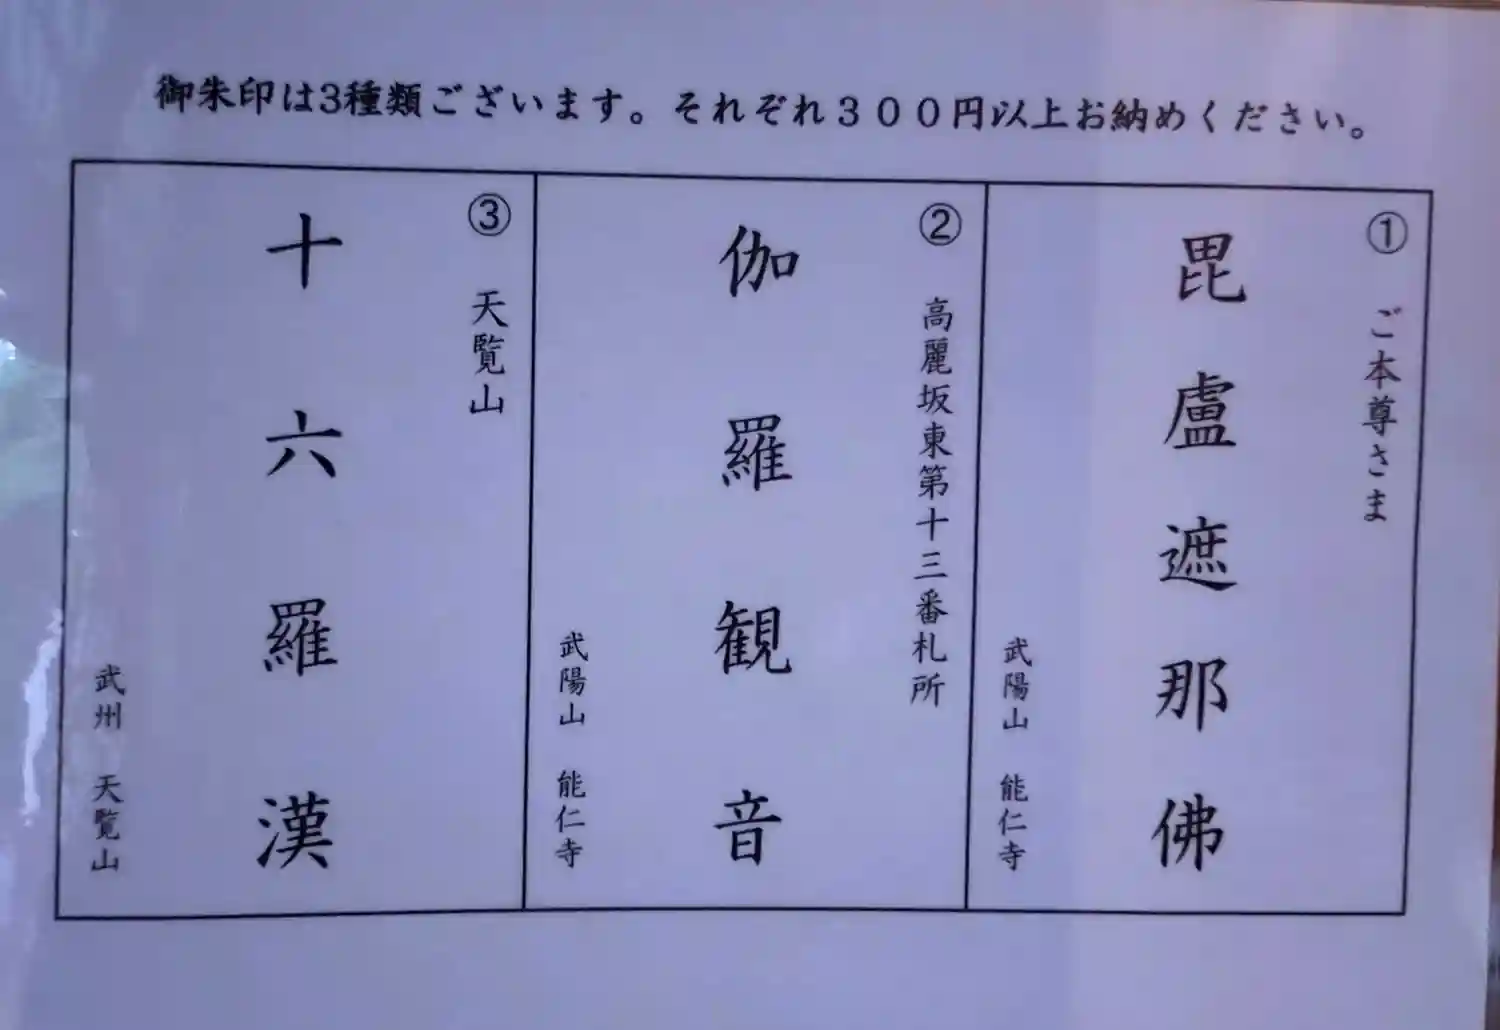 御朱印は3種類ございます。それぞれ３００円以上お納めください。
①
ご本尊さま
毘盧遮那佛
武陽山 能仁寺
②
高麗坂東第十三番札所
伽羅観音
武陽山 能仁寺
③
天覧山
十六羅漢
武州 天覧山